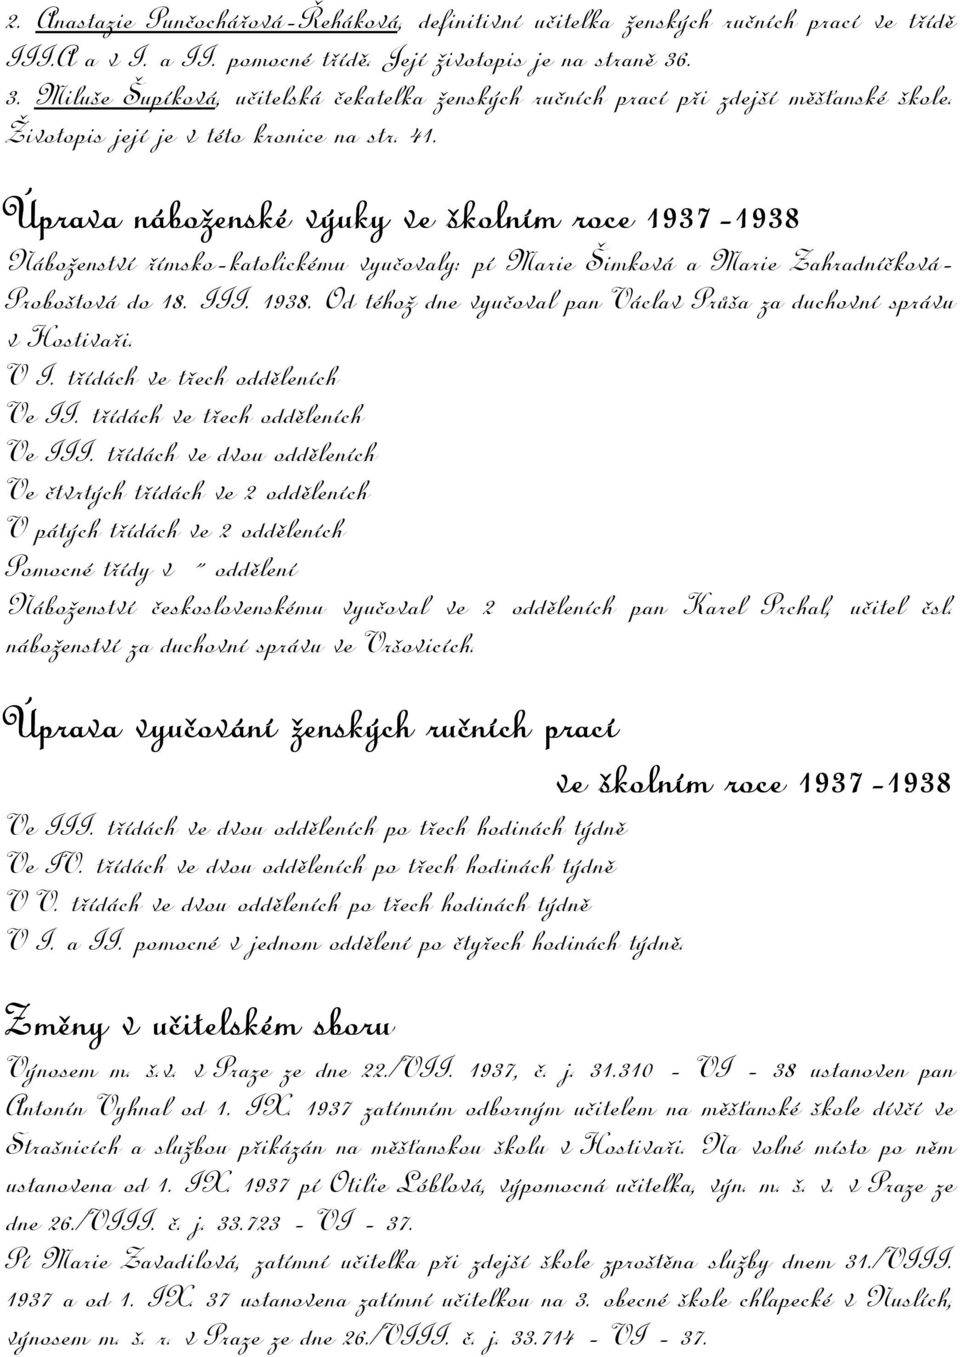 2. Anastazie Punčochářová-Řeháková, definitivní učitelka ženských ručních prací ve třídě
III.A a v I. a II. pomocné třídě. Její životopis je na straně 36.
3. Miluše Šupíková, učitelská čekatelka ženských ručních prací při zdejší měšťanské škole.
Životopis její je v této kronice na str. 41.
Úprava náboženské výuky ve školním roce 1937-1938
Náboženství římsko-katolickému vyučovaly: pí Marie Šimková a Marie Zahradníčková-
Proboštová do 18. III. 1938. Od téhož dne vyučoval pan Václav Průša za duchovní správu
v Hostivaři.
V I. třídách ve třech odděleních
Ve II. třídách ve třech odděleních
Ve III. třídách ve dvou odděleních
Ve čtvrtých třídách ve 2 odděleních
V pátých třídách ve 2 odděleních
Pomocné třídy v " oddělení
Náboženství československému vyučoval ve 2 odděleních pan Karel Prchal, učitel čsl.
náboženství za duchovní správu ve Vršovicích.
Úprava vyučování ženských ručních prací
ve školním roce 1937-1938
Ve III. třídách ve dvou odděleních po třech hodinách týdně
Ve IV. třídách ve dvou odděleních po třech hodinách týdně
V V. třídách ve dvou odděleních po třech hodinách týdně
V I. a II. pomocné v jednom oddělení po čtyřech hodinách týdně.
Změny v učitelském sboru
Výnosem m. š.v. v Praze ze dne 22./VII. 1937, č. j. 31.310 - VI - 38 ustanoven pan
Antonín Vyhnal od 1. IX. 1937 zatímním odborným učitelem na měšťanské škole dívčí ve
Strašnicích a službou přikázán na měšťanskou školu v Hostivaři. Na volné místo po něm
ustanovena od 1. IX. 1937 pí Otilie Löblová, výpomocná učitelka, výn. m. š. v. v Praze ze
dne 26./VIII. č. j. 33.723 - VI - 37.
Pí Marie Zavadilová, zatímní učitelka při zdejší škole zproštěna služby dnem 31./VIII.
1937 a od 1. IX. 37 ustanovena zatímní učitelkou na 3. obecné škole chlapecké v Nuslích,
výnosem m. š. r. v Praze ze dne 26./VIII. č. j. 33.714 - VI - 37.